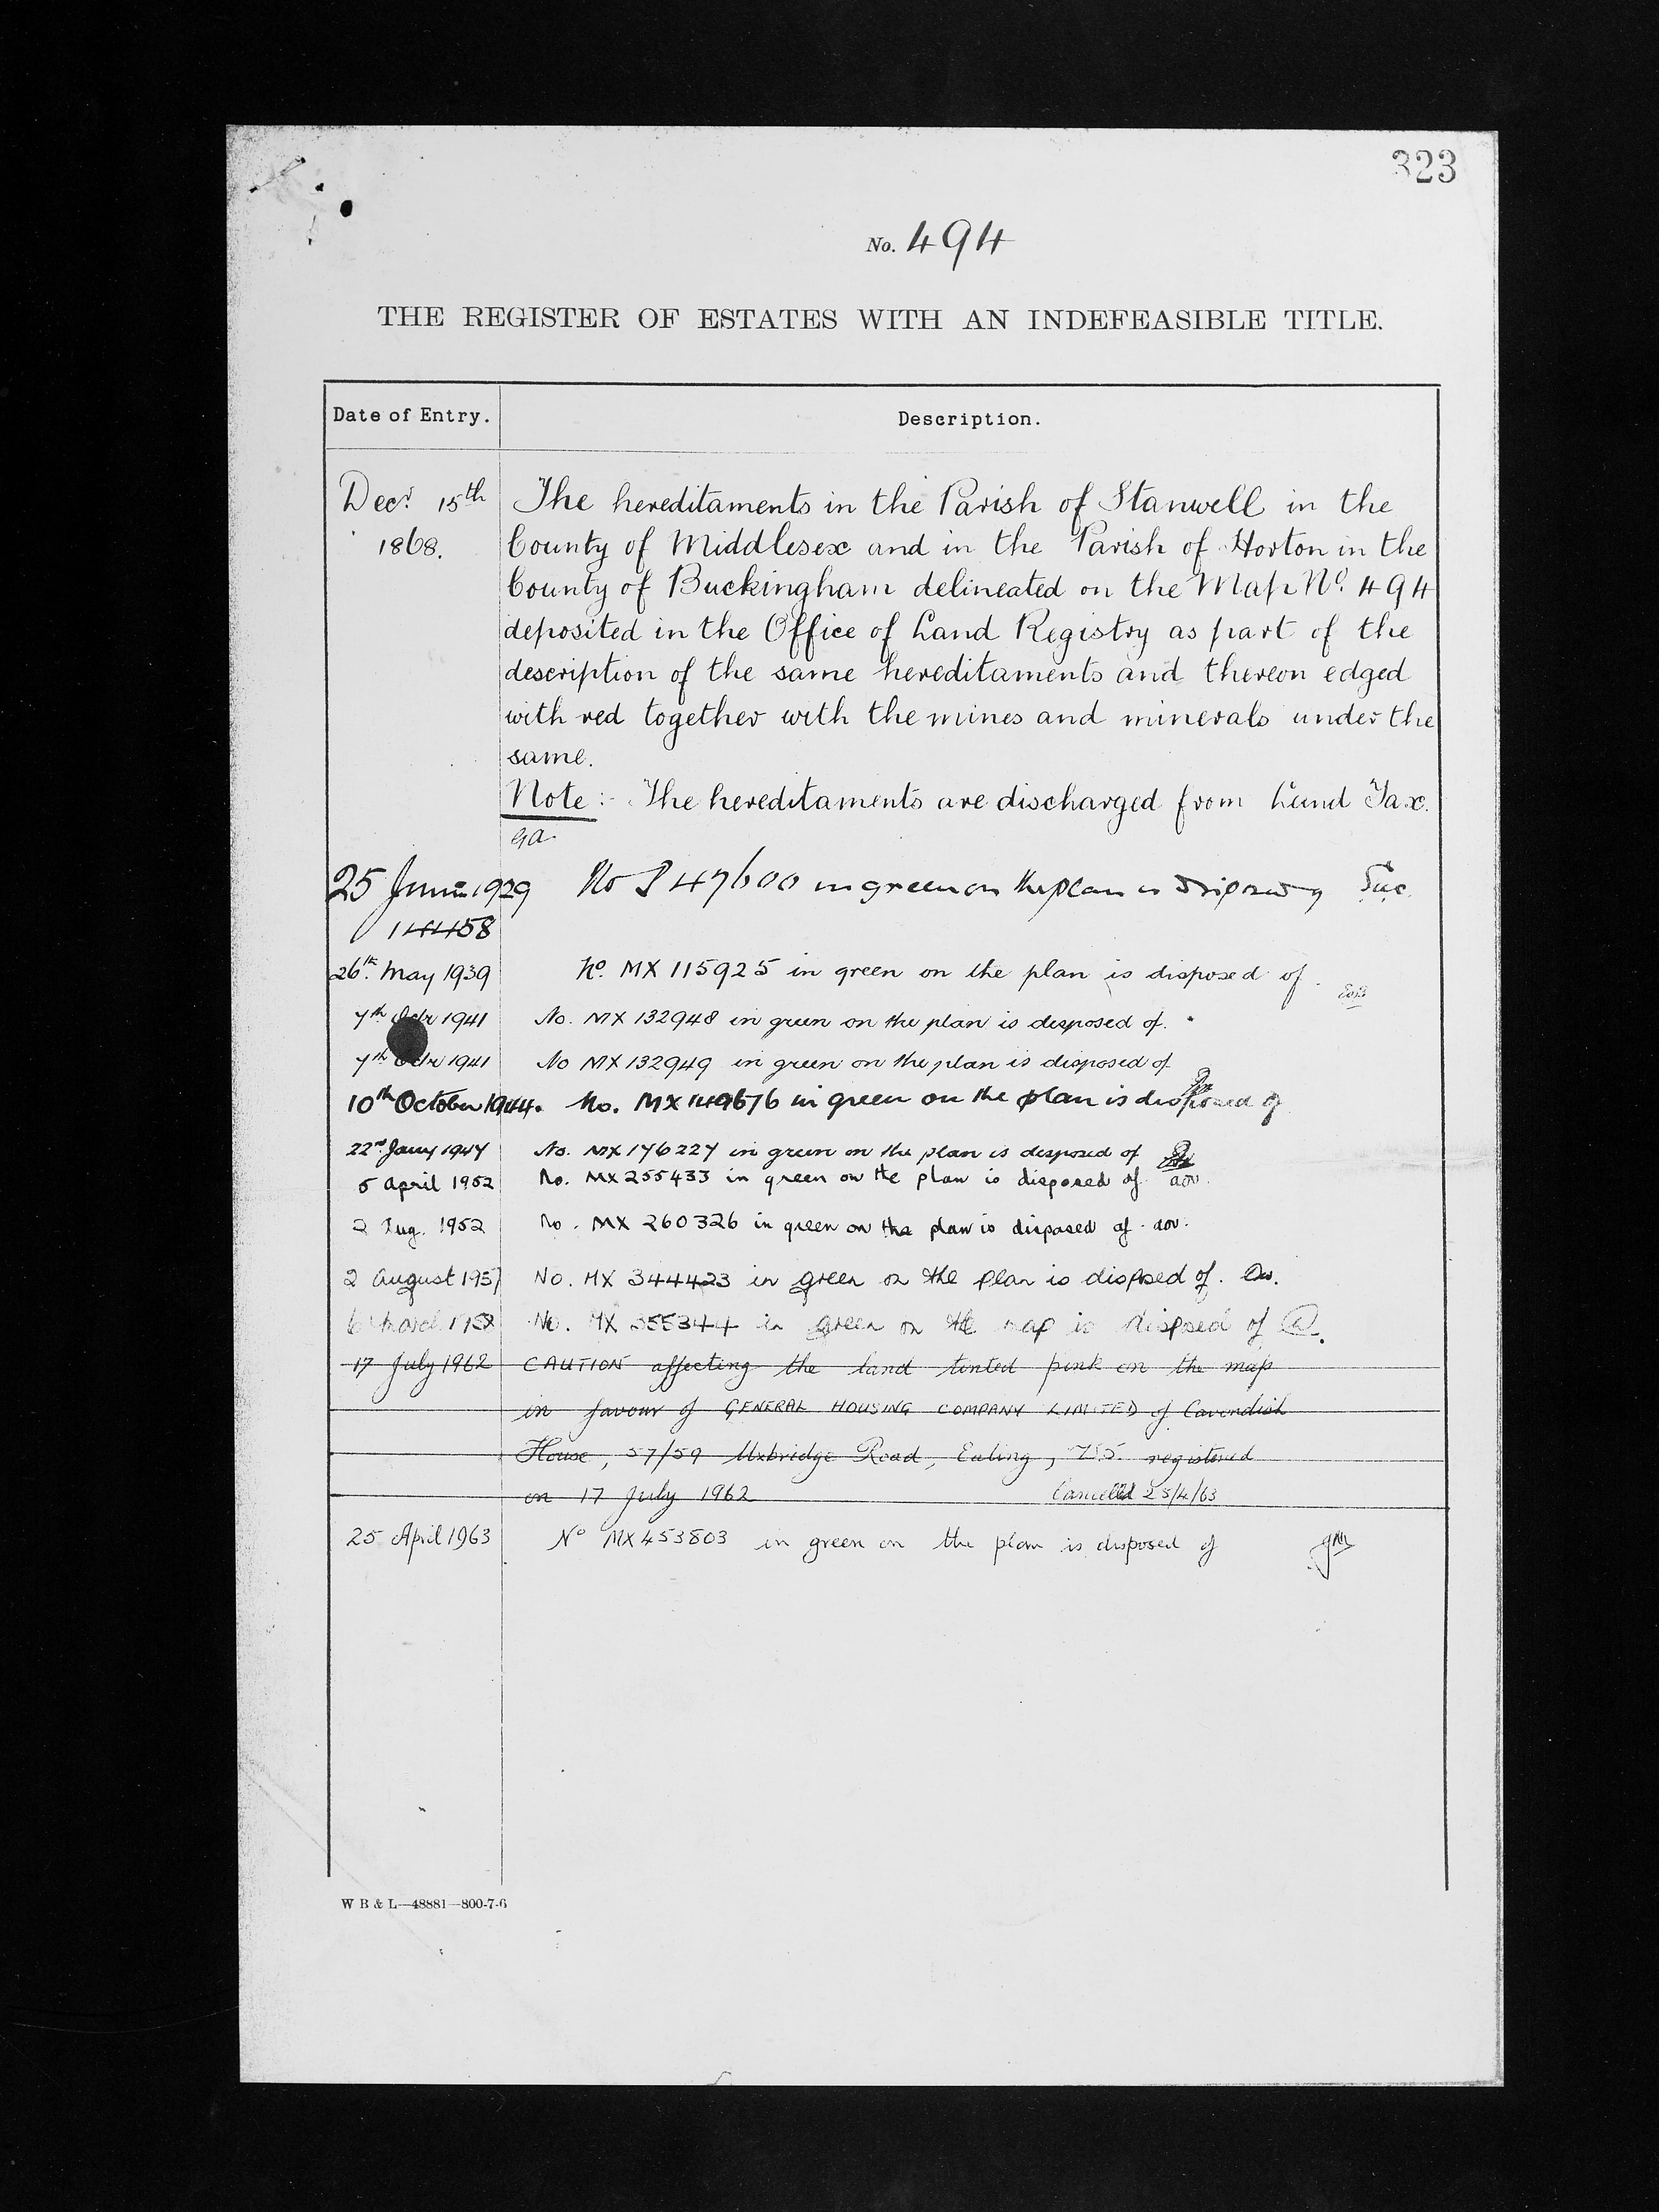 323
No. 494
THE REGISTER OF ESTATES WITH AN INDEFEASIBLE TITLE.
Date of Entry. Description.
Decr. 15th The hereditaments in the Parish of Stanwell in the
1868. County of Middlesex and in the Parish of Horton in the
County of Buckingham delineated on the Map No. 494
deposited in the Office of Land Registry as part of the
description of the same hereditaments and thereon edged
with red together with the mines and minerals under the
same.
Note:- The hereditaments are discharged from Land Tax.
25 June 1929 No P 47600 in green on the plan is disposed of
26th. May 1939 No. MX 115925 in green on the plan is disposed of.
7th Octr 1941 No. MX 132948 in green on the plan is disposed of.
7th Octr 1941 No MX 132949 in green on the plan is disposed of
10th October 1944. No. MX 149676 in green on the plan is disposed of
22nd Jany 1947 No. MX 176227 in green on the plan is disposed of
5 April 1952 No. MX 255433 in green on the plan is disposed of. aov.
2 Aug. 1952 No. MX 260326 in green on the plan is disposed of. aov.
2 August 1957 No. MX 344423 in green on the plan is disposed of.
6 March 1958 No. MX 355344 in green on the map is disposed of
17 July 1962 CAUTION affecting the land tinted pink on the map
in favour of GENERAL HOUSING COMPANY LIMITED of Cavendish
House, 57/59 Uxbridge Road, Ealing, W5. registered
on 17 July 1962 Cancelled 25/4/63
25 April 1963 No MX 453803 in green on the plan is disposed of
W B & L—48881—800-7-6